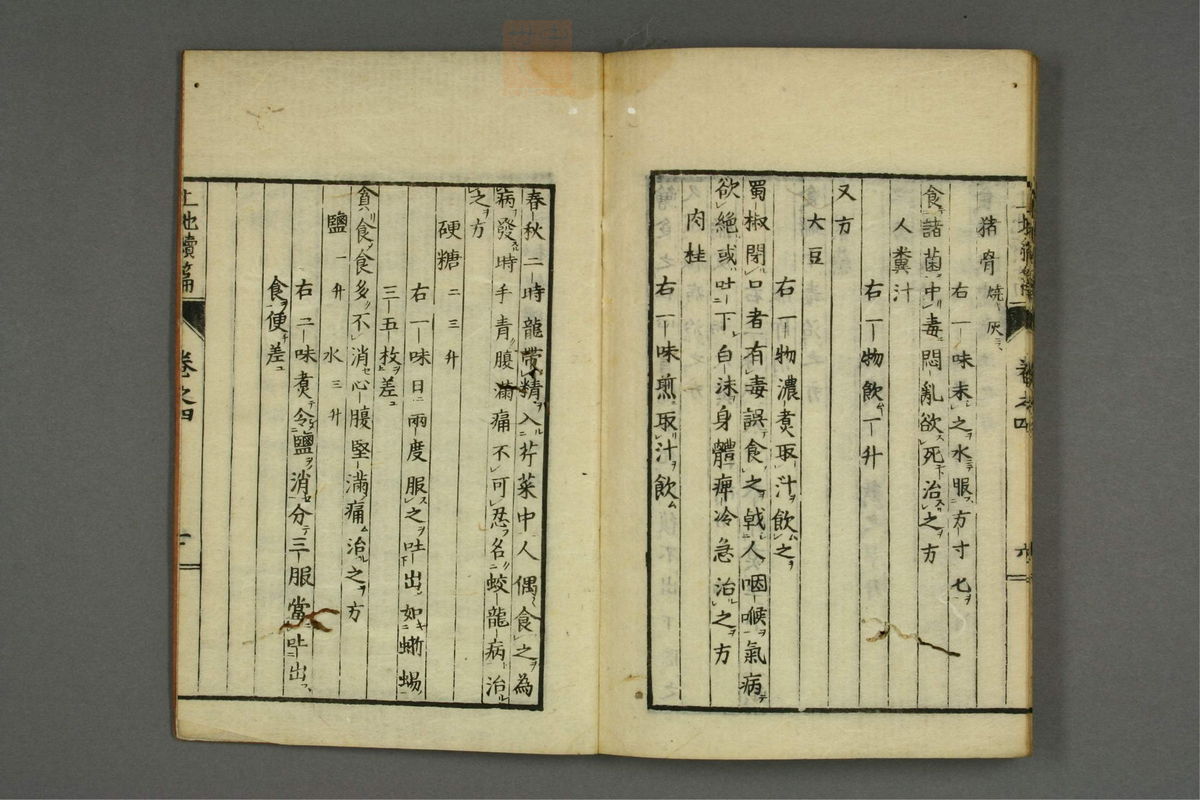 猪骨 焼灰
右一味末之水服方寸七
食諸菌中毒悶亂欲死治之方
人糞汁
右一物飲一升
又方
大豆
右一物濃煮取汁飲之
蜀椒閉口者有毒誤食之戟人咽喉氣病
欲絶或吐下白沫身體痺冷急治之方
肉桂
右一味煎取汁飲
春秋二時龍帶精入芹菜中人偶食之為
病發時手青腹滿痛不可忍名蛟龍病治
之方
硬糖 二三升
右一味日兩度服之吐出如蜥蜴
三五枚差
貪食食多不消心腹堅滿痛治之方
鹽一升 水三升
右二味煮令鹽消分三服當吐出
食便差
續篇
卷之四